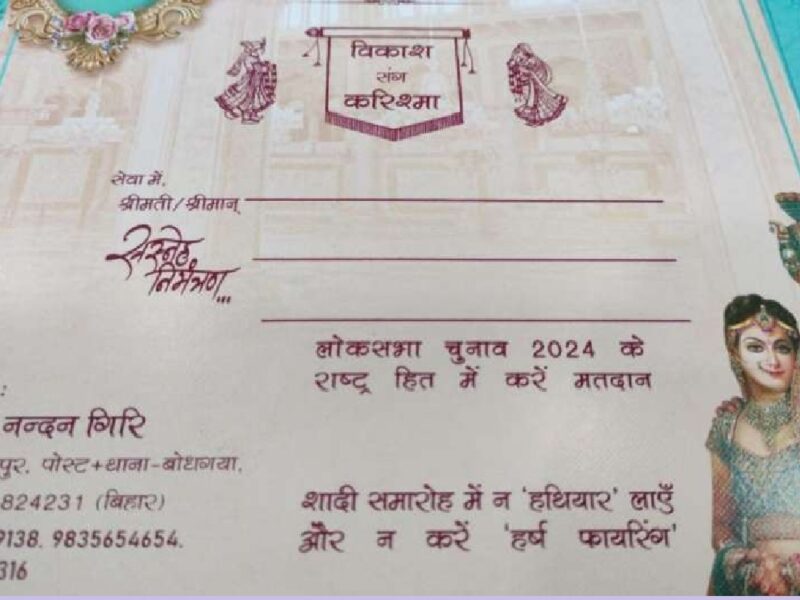 विकाश
संग
करिश्मा
सेवा में,
श्रीमती/श्रीमान्
सस्नेह
निमंत्रण...
लोकसभा चुनाव 2024 के
राष्ट्र हित में करें मतदान
:
नन्दन गिरि
पुर, पोस्ट+थाना-बोधगया,
824231 (बिहार)
9138, 9835654654,
316
शादी समारोह में न 'हथियार' लाएँ
और न करें 'हर्ष फायरिंग'